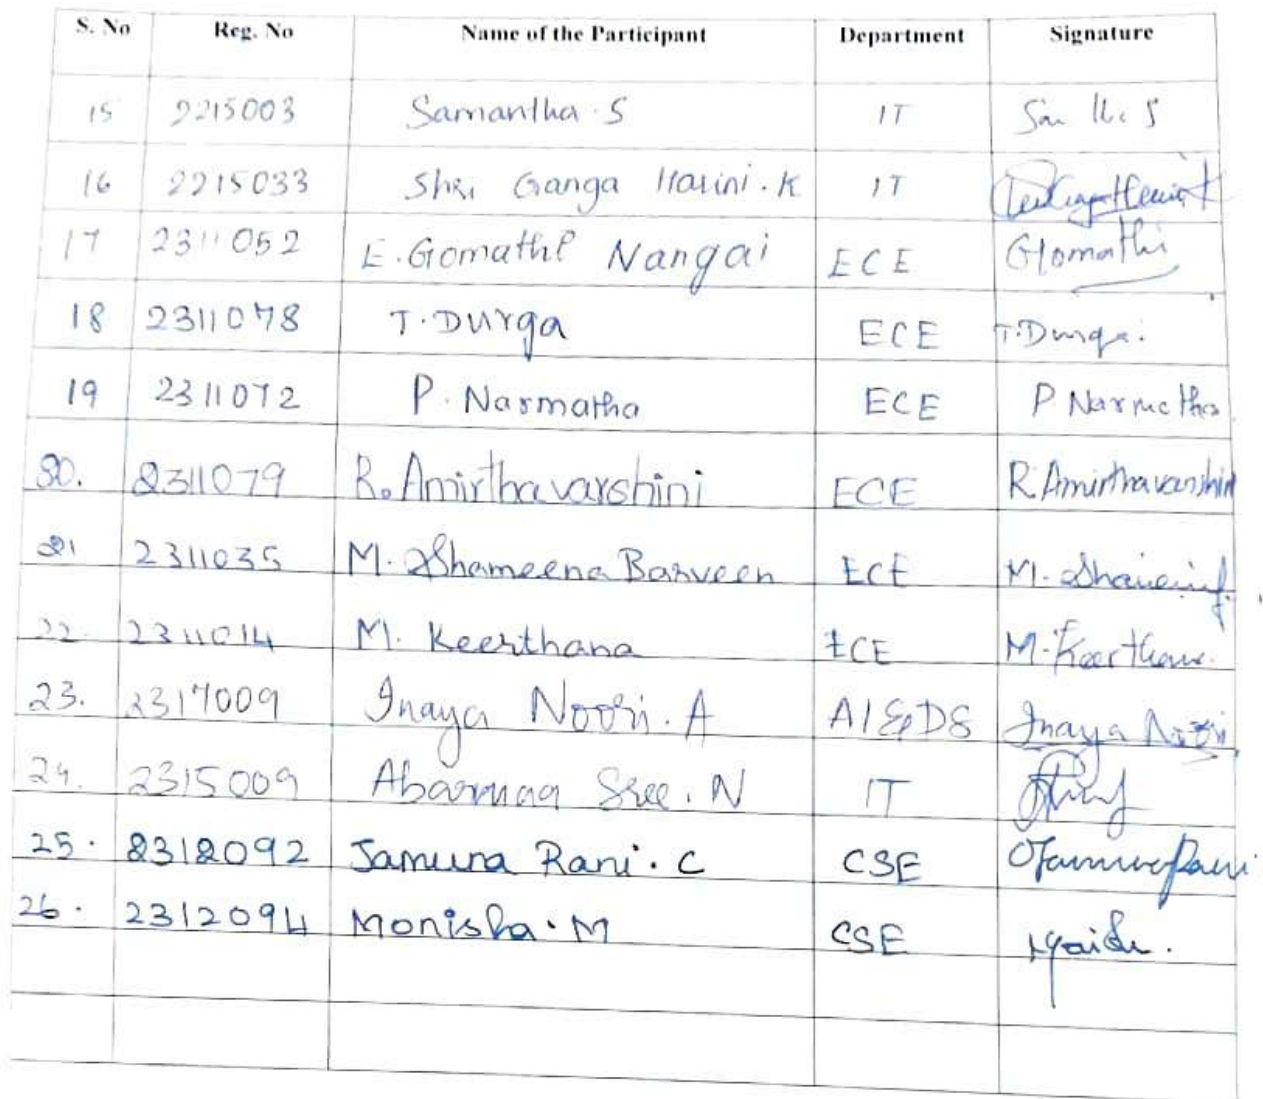 S. No Reg. No Name of the Participant Department Signature
15 2215003 Samantha. S IT
16 2215033 Shri Ganga Harini. K IT
17 2311052 E. Gomathi Nangai ECE Gomathi
18 2311078 T. Durga ECE T. Durga.
19 2311072 P. Narmatha ECE P. Narmatha
20. 2311079 R. Amirthavarshini ECE R. Amirthavarshini
21 2311035 M. Shameena Barveen ECE M.
22. 2311014 M. Keerthana ECE M. Keerthana.
23. 2317009 Inaya Noori. A AI & DS Inaya Noori
24. 2315009 Abarnaa Sree. N IT
25. 2312092 Jamuna Rani. C CSE
26. 2312094 Monisha. M CSE